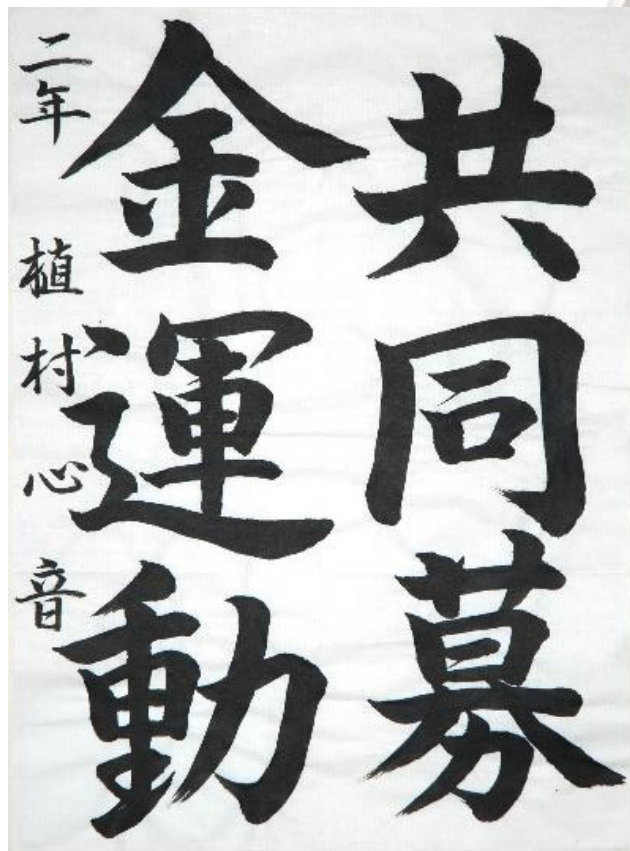 共同募
金運動
二年 植村心音